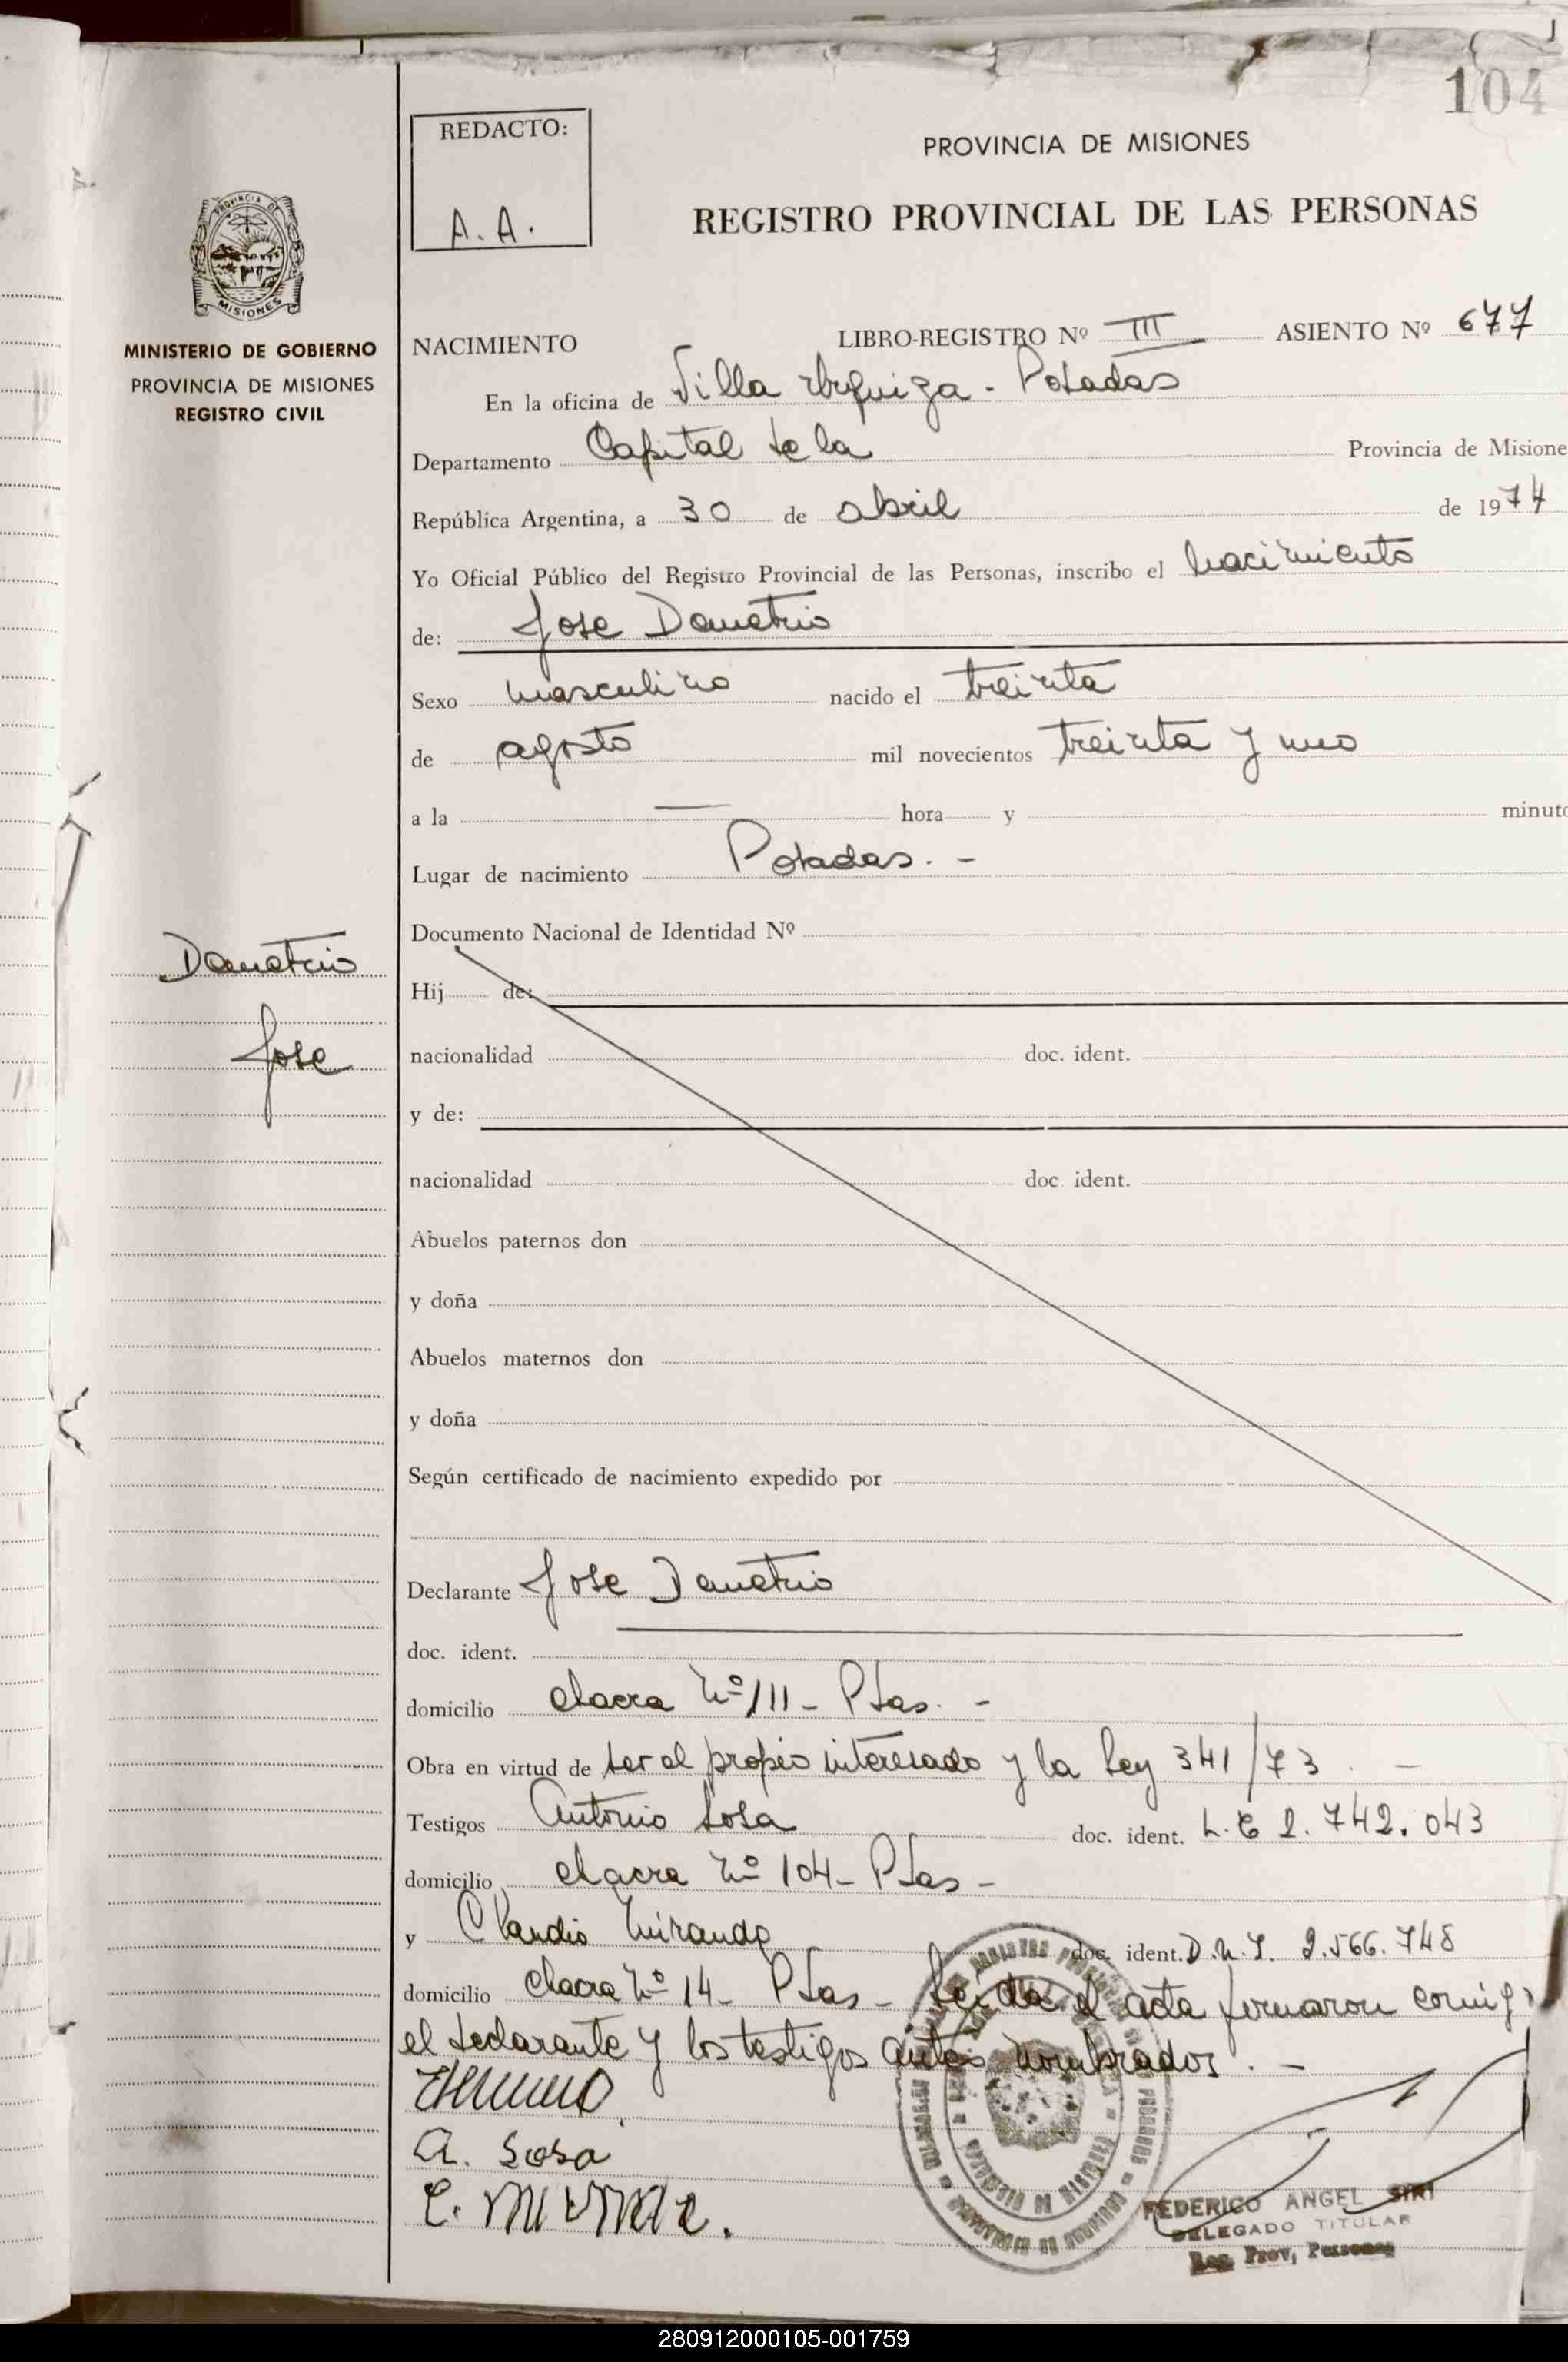 104
REDACTO:
A. A.
PROVINCIA DE MISIONES
REGISTRO PROVINCIAL DE LAS PERSONAS
PROVINCIA DE
MISIONES
MINISTERIO DE GOBIERNO
PROVINCIA DE MISIONES
REGISTRO CIVIL
NACIMIENTO LIBRO-REGISTRO Nº III ASIENTO Nº 677
En la oficina de Villa Urquiza - Posadas
Departamento Capital de la Provincia de Misione
República Argentina, a 30 de abril de 1974
Yo Oficial Público del Registro Provincial de las Personas, inscribo el nacimiento
de: Jose Demetrio
Sexo masculino nacido el treinta
de agosto mil novecientos treinta y uno
a la — hora y minuto
Lugar de nacimiento Posadas. -
Documento Nacional de Identidad Nº
Demetrio
Jose
Hij de:
nacionalidad doc. ident.
y de:
nacionalidad doc. ident.
Abuelos paternos don
y doña
Abuelos maternos don
y doña
Según certificado de nacimiento expedido por
Declarante Jose Demetrio
doc. ident.
domicilio chacra Nº 111 - Pdas. -
Obra en virtud de ser el propio interesado y la ley 341/73. —
Testigos Antonio Sosa doc. ident. L. E 2. 742. 043
domicilio chacra Nº 104 - Pdas -
y Claudio Miranda doc. ident. D. N. I. 2.566. 748
domicilio chacra Nº 14 - Pdas - Leida el acta firmaron
el declarante y los testigos antes nombrados. -
A. Sosa
FEDERICO ANGEL SIRI
DELEGADO TITULAR
Reg. Prov, Personas
280912000105-001759